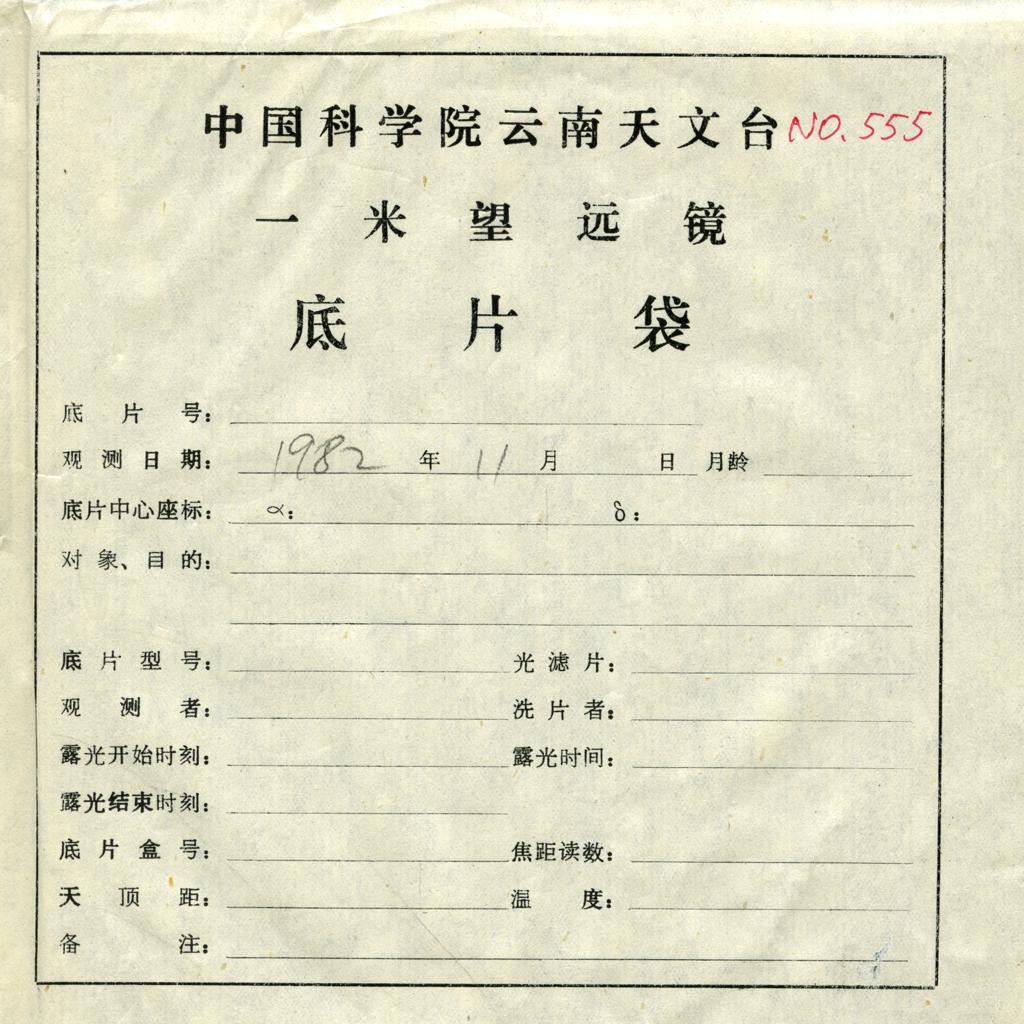 中国科学院云南天文台 NO.555
一米望远镜
底片袋
底片号：
观测日期： 1982 年 11 月 日 月龄
底片中心座标： α： δ：
对象、目的：
底片型号： 光滤片：
观测者： 洗片者：
露光开始时刻： 露光时间：
露光结束时刻：
底片盒号： 焦距读数：
天顶距： 温度：
备注：